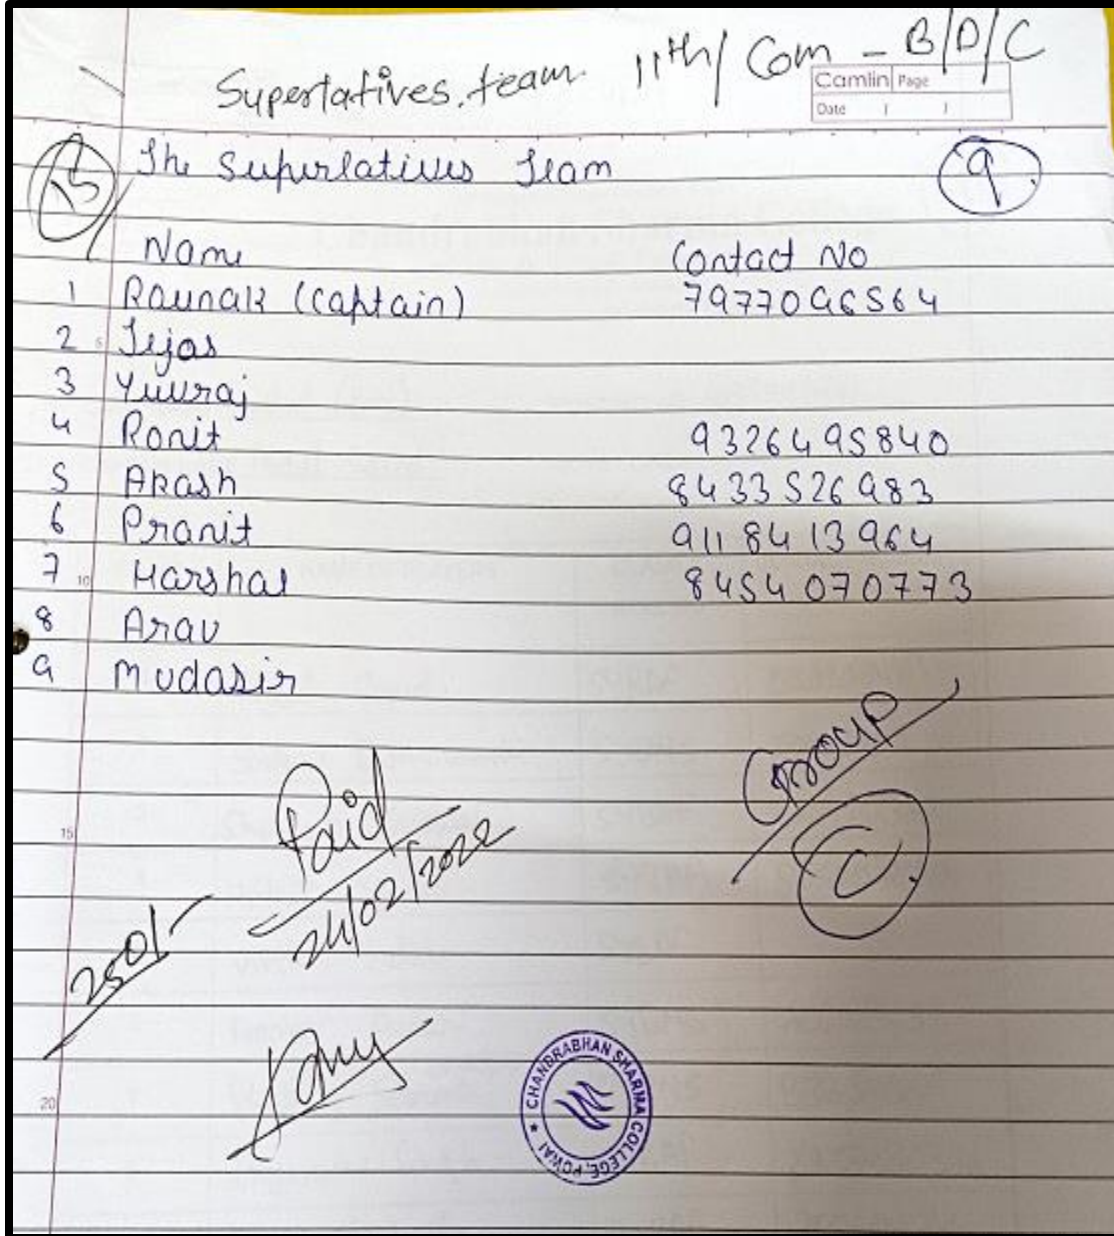 Superlatives. team 11th/ Com - B/D/C
Camlin Page
Date / /
15
The Superlatives Team
9
Name Contact No
1 Raunak (Captain) 7977096564
2 Tejas
3 Yuvraj
4 Ronit 9326495840
5 Akash 8433526983
6 Pranit 9118413964
7 Harshal 8454070773
8 Arav
9 Mudasir
5
10
15
20
Group
C
Paid
24/02/2022
250/-
CHANDRABHAN SHARMA COLLEGE, POWAI ★